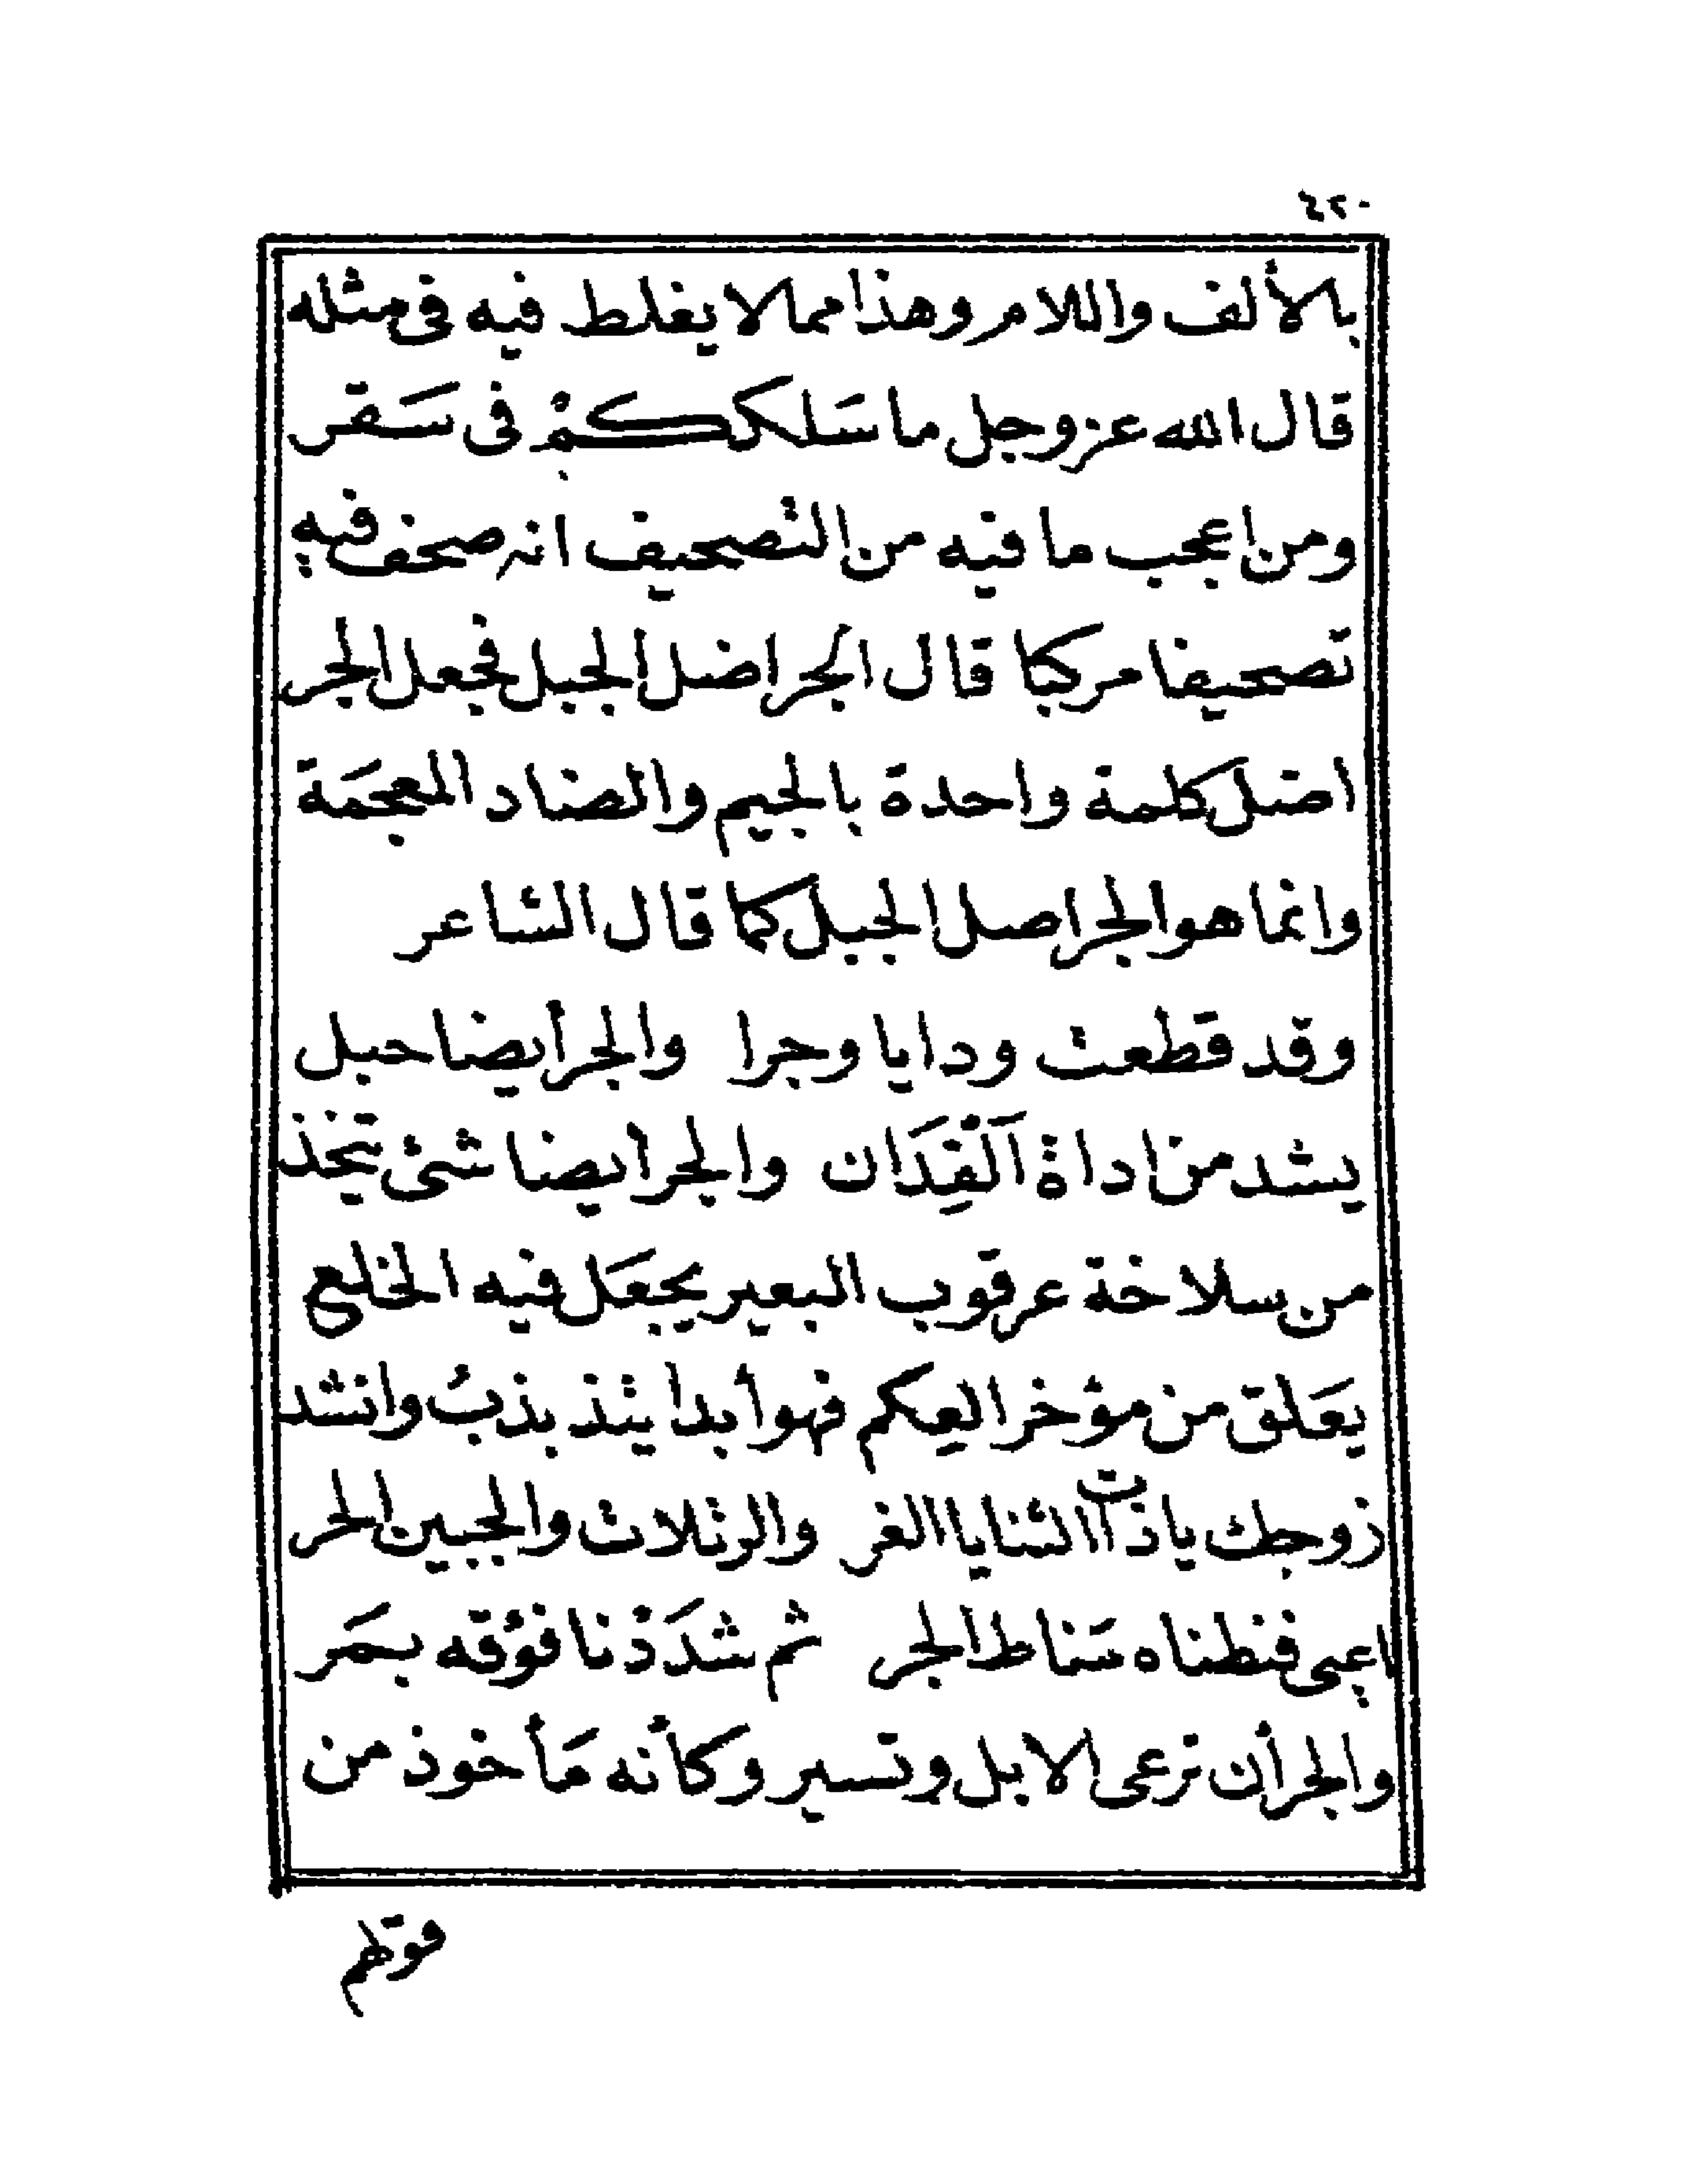 ٤٢٠
بالألف واللام وهذا مما لا يغلط فيه فى مثله
قال الله عز وجل ما سَلككمْ فى سَقر
ومن اعجب ما فيه من التصحيف انه صحف فيه
تصحيفا مركبا قال الجراضل الجبل فجعل الجر
اضل كلمة واحدة بالجيم والضاد المعجمَة
وانما هو الجر اصل الجبل كما قال الشاعر
وقد قطعت ودايا وجرا والجر أيضا حبل
يشد من اداة اَلْفِدَان والجر ايضا شئ تيخذ
من سلاخة عرقوب البعير يجعَل فيه الخلع
يعَلق من مؤخر العِكم فهو أبدا يتذبذبُ وانشد
زوجك يا ذات االثنايا الغر والرتلات والجبين الحر
اعيى فنطناه مَناط الجر ثم شدَدْنا فوْقه بمَر
والجر أن ترعى الابل وتسير وكأنه مَأخوذ من
قولهم